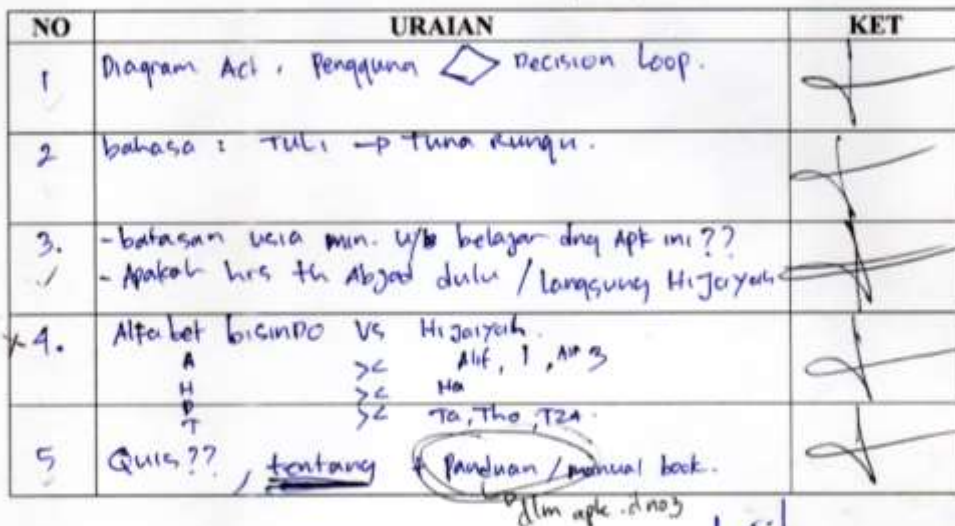 NO URAIAN KET
1 Diagram Act, Pengguna Decision Loop.
2 bahasa : TULi → Tuna Rungu.
3. - batasan usia min. u/ belajar dng Apk ini??
- Apakah hrs th Abjad dulu / langsung Hijaiyah
4. Alfabet bisinDO VS Hijaiyah.
A >< Alif, 1,
H >< Ha
D
T >< Ta, Tho, TZA.
5 Quis??, tentang + Panduan / manual book.
dlm apk.